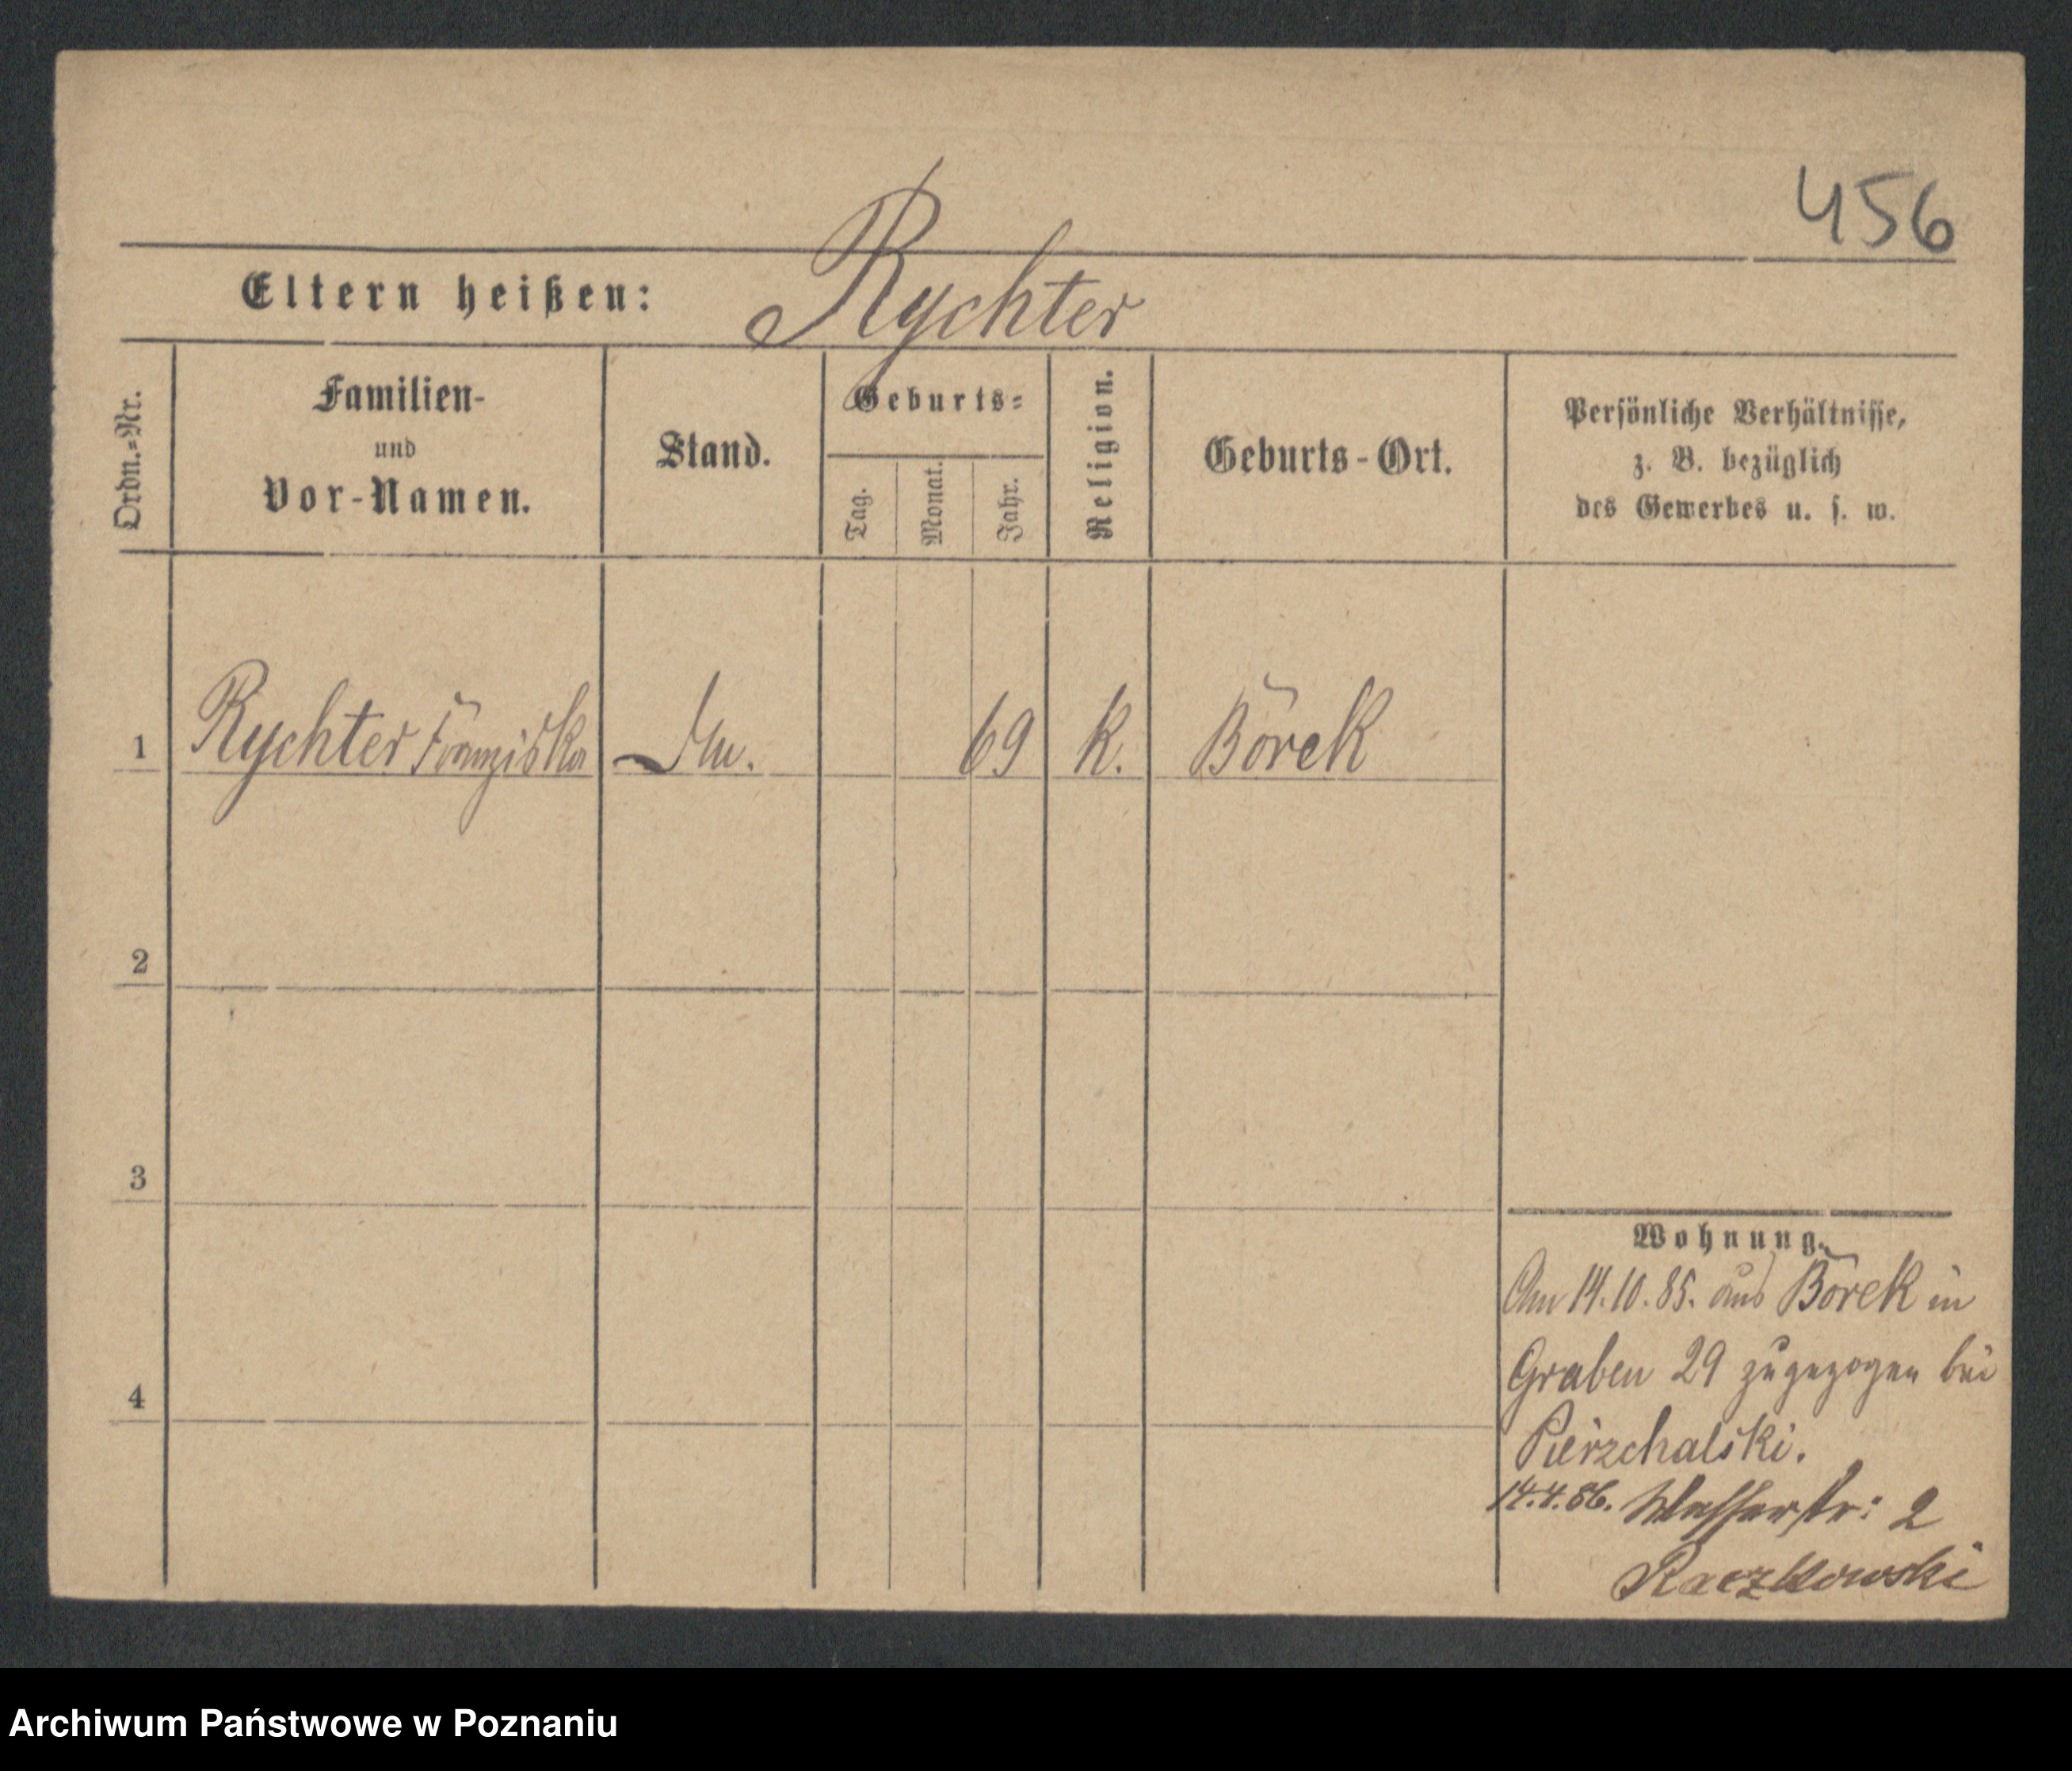 456
Eltern heißen: Rychter
Ordn.=Nr.
Familien-
und
Vor-Namen.
Stand.
Geburts=
Tag.
Monat.
Jahr.
Religion.
Geburts-Ort.
Persönliche Verhältnisse,
z. B. bezüglich
des Gewerbes u. s. w.
1 Rychter Franziska 69 k. Borek
2
3
4
Wohnung.
Am 14.10.85. aus Borek in
Graben 29 zugezogen bei
Pierzchalski.
14.4.86. Wasserstr: 2
Raczkowski
Archiwum Państwowe w Poznaniu